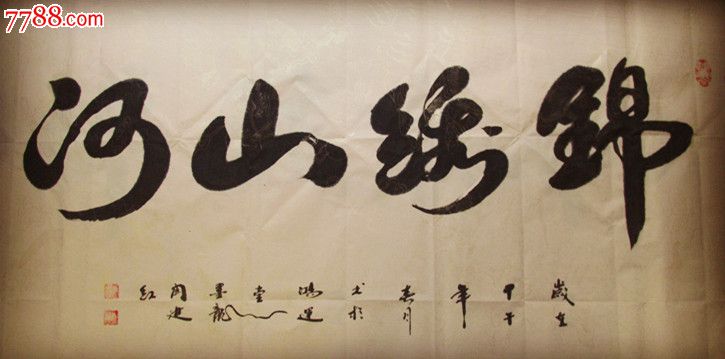 7788.com
錦綉山河
歲在甲午年春月书於鴻運堂墨龍闫建紅